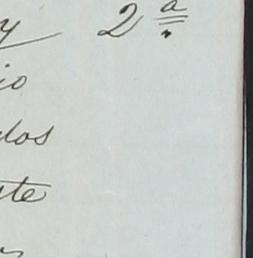 y 2ª
io
dos
ste